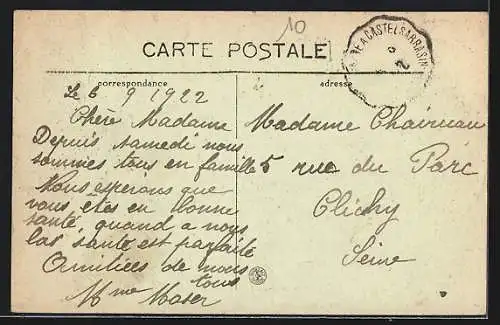 10
CARTE POSTALE
A CASTELSARRASIN
correspondance
adresse
Le 6 9 1922
Chère Madame
Depuis samedi nous
sommes tous en famille
Nous esperons que
vous êtes en bonne
santé, quand a nous
las santé est parfaite
Amitiées de nous
tous
Mme
Madame
5 rue du Parc
Clichy
Seine